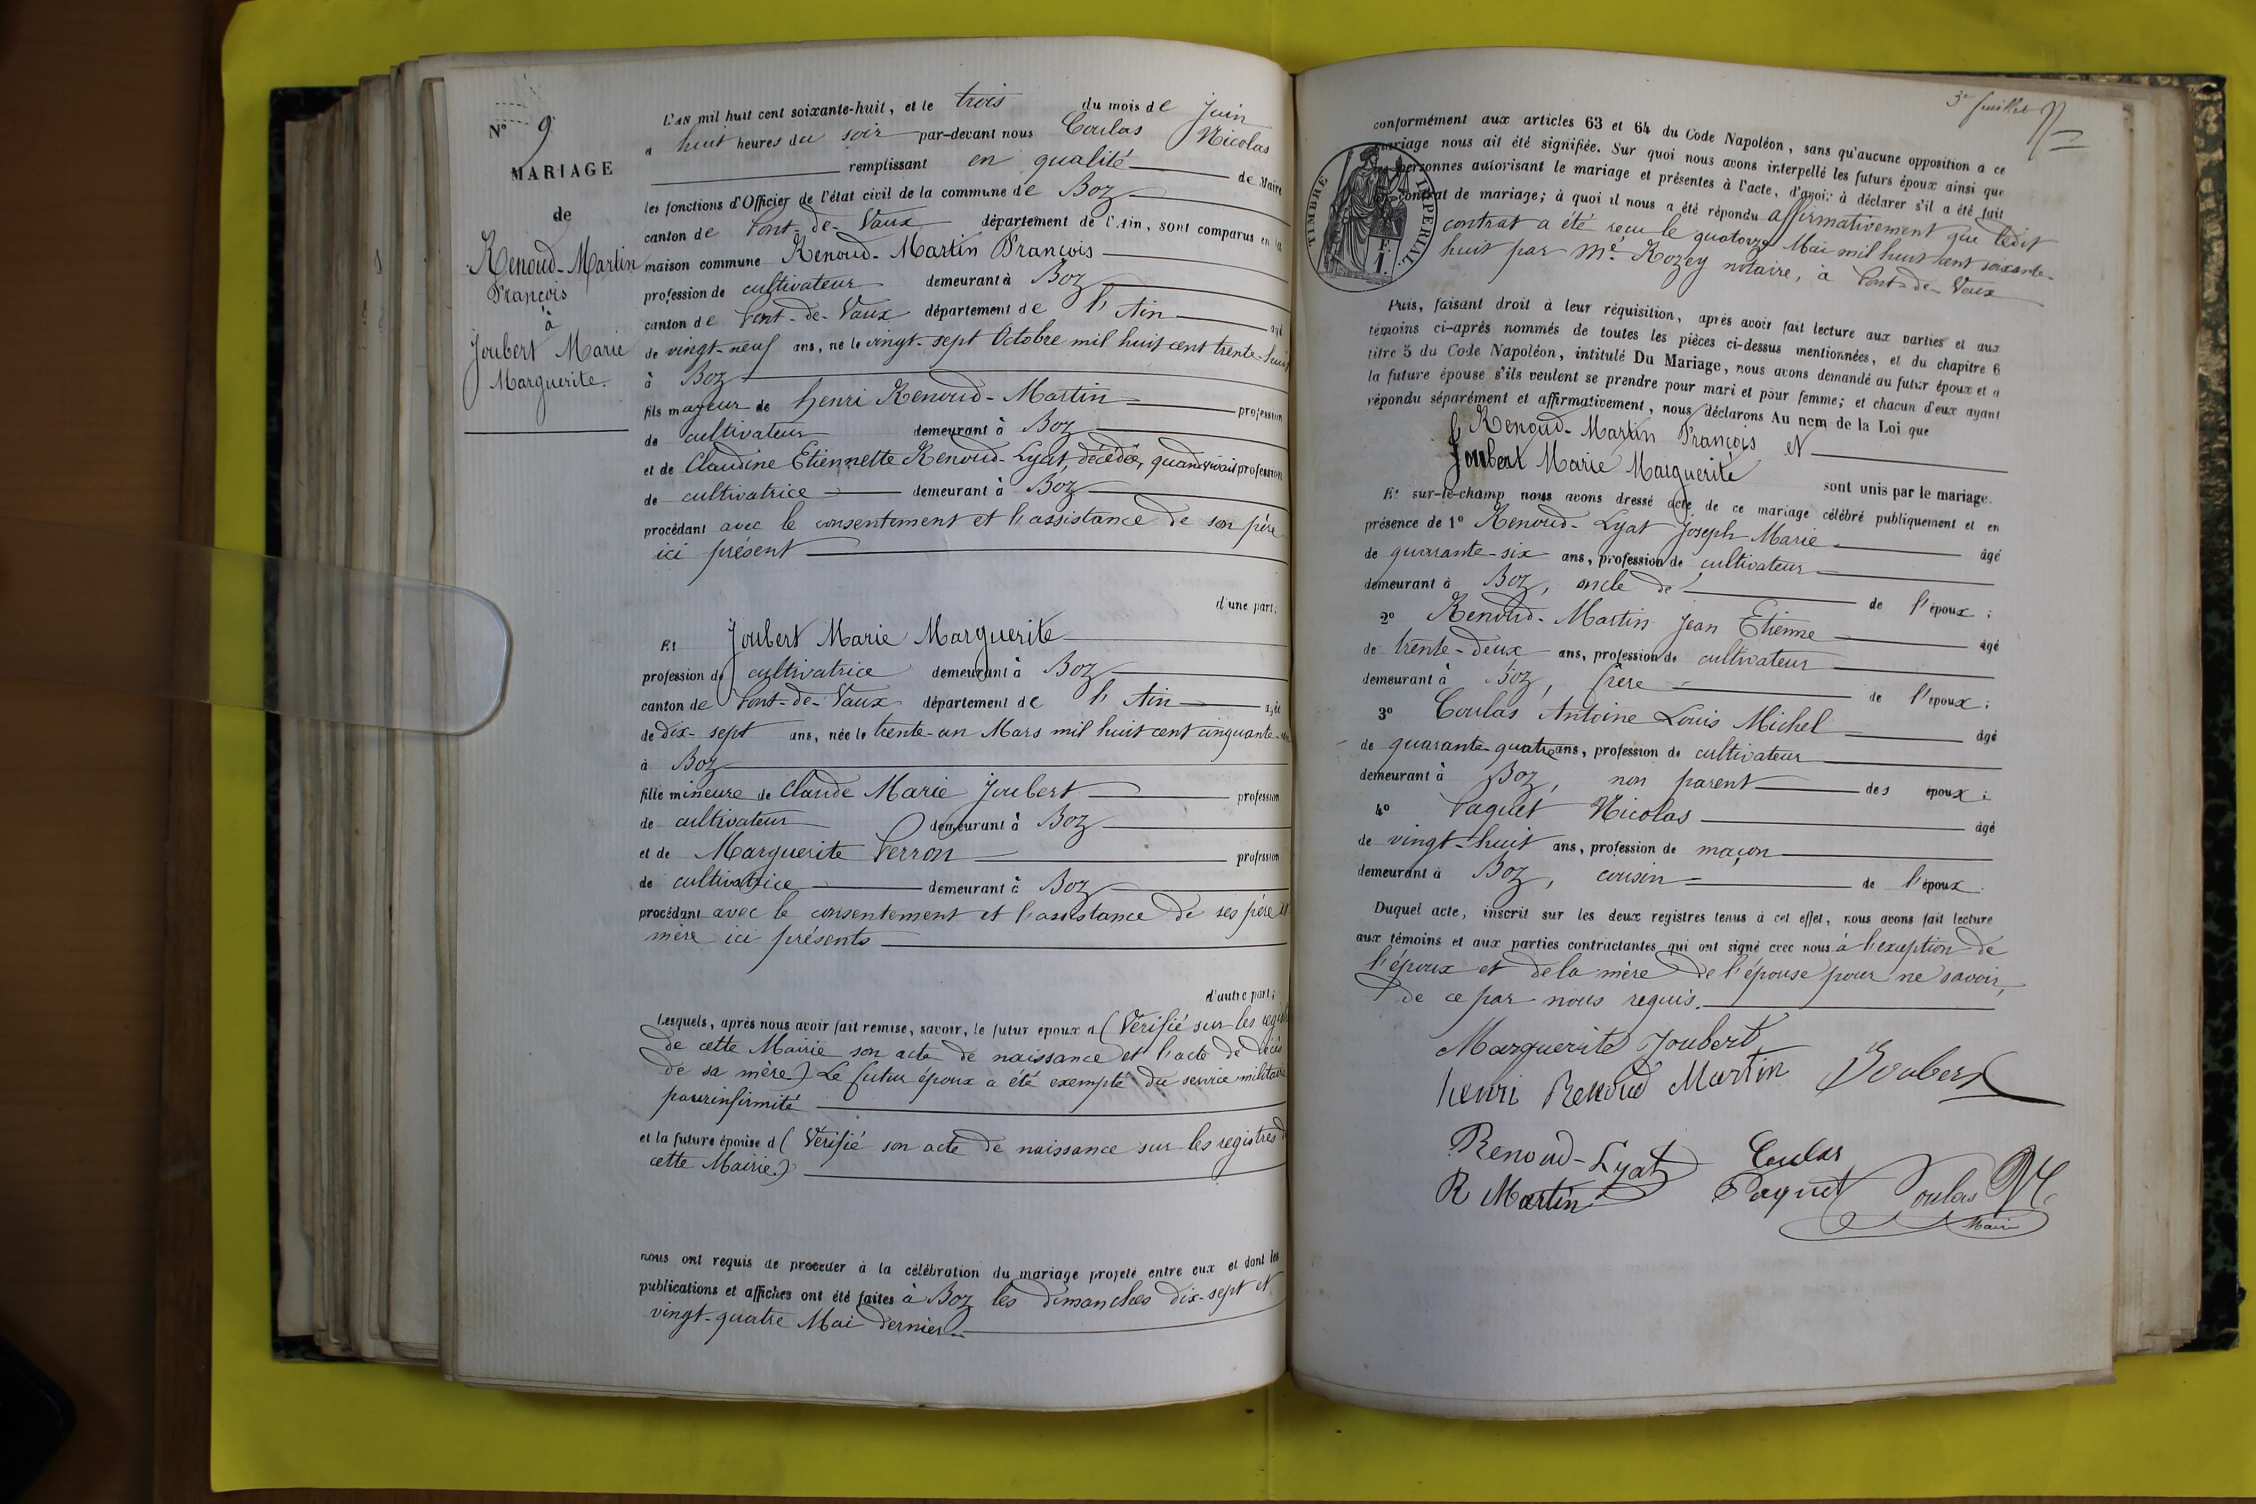 N° 9
MARIAGE
de
Renoud-Martin
François
à
Joubert Marie
Marguerite.
L'AN mil huit cent soixante-huit, et le trois du mois de Juin
à huit heures du soir par-devant nous Coulas Nicolas
remplissant en qualité de Maire
les fonctions d'Officier de l'état civil de la commune de Boz
canton de Pont-de-Vaux département de l'Ain, sont comparus en la
maison commune Renoud-Martin François
profession de cultivateur demeurant à Boz
canton de Pont-de-Vaux département de l'Ain âgé
de vingt-neuf ans, né le vingt-sept Octobre mil huit cent trente-huit
à Boz
fils majeur de henri Renoud-Martin profession
de cultivateur demeurant à Boz
et de Claudine Etiennette Renoud-Lyat, décédée, quand vivait profession
de cultivatrice demeurant à Boz
procédant avec le consentement et l'assistance de son père
ici présent
d'une part;
Et Joubert Marie Marguerite
profession de cultivatrice demeurant à Boz
canton de Pont-de-Vaux département de l'Ain âgée
de dix-sept ans, née le trente-un Mars mil huit cent cinquante-un
à Boz
fille mineure de Claude Marie Joubert profession
de cultivateur demeurant à Boz
et de Marguerite Perron profession
de cultivatrice demeurant à Boz
procédant avec le consentement et l'assistance de ses père et
mère ici présents
d'autre part;
Lesquels, après nous avoir fait remise, savoir, le futur époux d (Vérifié sur les registres
de cette Mairie son acte de naissance et l'acte de décès
de sa mère) Le futur époux a été exempté du service militaire
pour infirmité
et la future épouse d (Vérifié son acte de naissance sur les registres de
cette Mairie.)
nous ont requis de procéder à la célébration du mariage projeté entre eux et dont les
publications et affiches ont été faites à Boz les dimanches dix-sept et
vingt-quatre Mai dernier
3e feuillet
conformément aux articles 63 et 64 du Code Napoléon, sans qu'aucune opposition à ce
mariage nous ait été signifiée. Sur quoi nous avons interpellé les futurs époux ainsi que
personnes autorisant le mariage et présentes à l'acte, d'avoir à déclarer s'il a été fait
contrat de mariage; à quoi il nous a été répondu affirmativement que ledit
contrat a été reçu le quatorze Mai mil huit cent soixante-
huit par Me Rozey notaire, à Pont-de-Vaux
TIMBRE IMPERIAL
Puis, faisant droit à leur réquisition, après avoir fait lecture aux parties et aux
témoins ci-après nommés de toutes les pièces ci-dessus mentionnées, et du chapitre 6
titre 5 du Code Napoléon, intitulé Du Mariage, nous avons demandé au futur époux et à
la future épouse s'ils veulent se prendre pour mari et pour femme; et chacun d'eux ayant
répondu séparément et affirmativement, nous déclarons Au nom de la Loi que
Renoud-Martin François et
Joubert Marie Marguerite
sont unis par le mariage.
Et sur-le-champ nous avons dressé acte de ce mariage célébré publiquement et en
présence de 1° Renoud-Lyat Joseph Marie âgé
de quarante-six ans, profession de cultivateur
demeurant à Boz, oncle de de l'époux;
2° Renoud-Martin Jean Etienne âgé
de trente-deux ans, profession de cultivateur
demeurant à Boz, frère de l'époux;
3° Coulas Antoine Louis Michel âgé
de quarante-quatre ans, profession de cultivateur
demeurant à Boz, non parent des époux;
4° Paquet Nicolas âgé
de vingt-huit ans, profession de maçon
demeurant à Boz, cousin de l'époux.
Duquel acte, inscrit sur les deux registres tenus à cet effet, nous avons fait lecture
aux témoins et aux parties contractantes qui ont signé avec nous à l'exception de
l'époux et de la mère de l'épouse pour ne savoir,
de ce par nous requis.
Marguerite Joubert
henri Renoud Martin Joubert
Renoud-Lyat Coulas
R Martin Paquet Coulas N
Maire